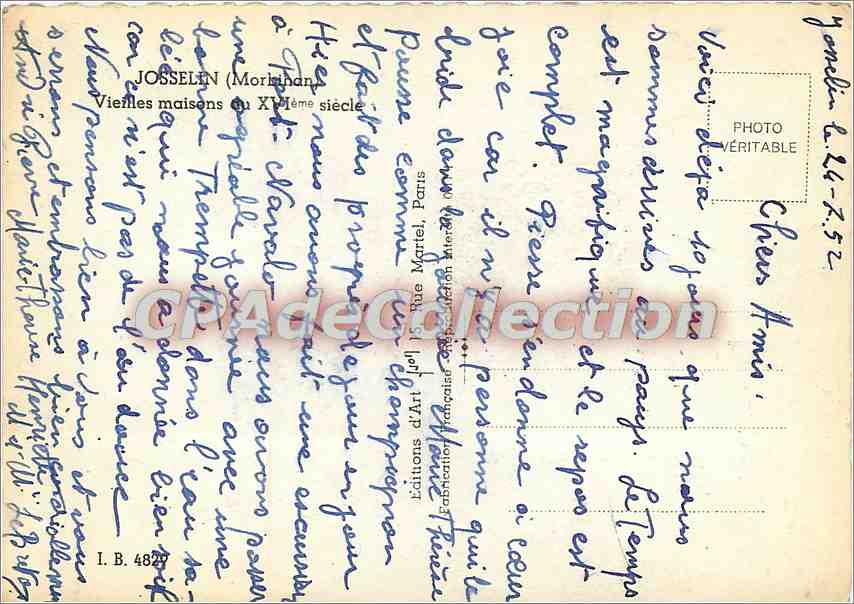 Josselin le 24-7.52
Chers Amis,
Voici déjà 10 jours que nous
sommes arrivés au pays. Le Temps
est magnifique et le repos est
complet. Pierre s'en donne à cœur
joie car il n'y a personne qui le
dans Marie Thérèse
Pousse comme un champignon
et fait des progrès de jour en jour
Hier nous avons fait une excursion
à Port-Navalo nous avons passer
une agréable journée avec une
bonne Trempette dans l'eau sa-
lée qui nous a donnée bien soif
car ce n'est pas de l'eau douce
Nous pensons bien à vous et vous
serrons et embrassons bien cordialement
Pierre Marie-Thérèse Henriette
Le Breton
JOSSELIN (Morbihan)
Vieilles maisons du XVIème siècle
PHOTO
VÉRITABLE
Editions d'Art 15 Rue Martel, Paris
Fabrication Française - Reproduction Interdite
I. B. 4829
CPAdeCollection